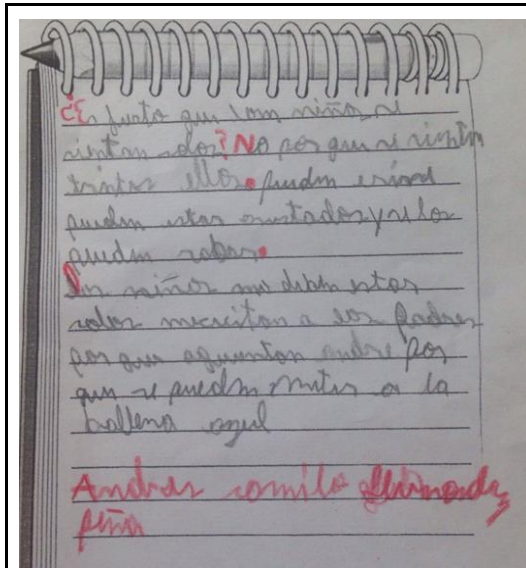 ¿Es justo que los niños se
sientan solos? No por que se sientn
tristes ellos. pueden
pueden estar asustados y se los
pueden robar.
Los niños no deben estar
solos necesitan a los padres
por que aguantan por
que se pueden meter a la
ballena azul
Andres camilo
peña